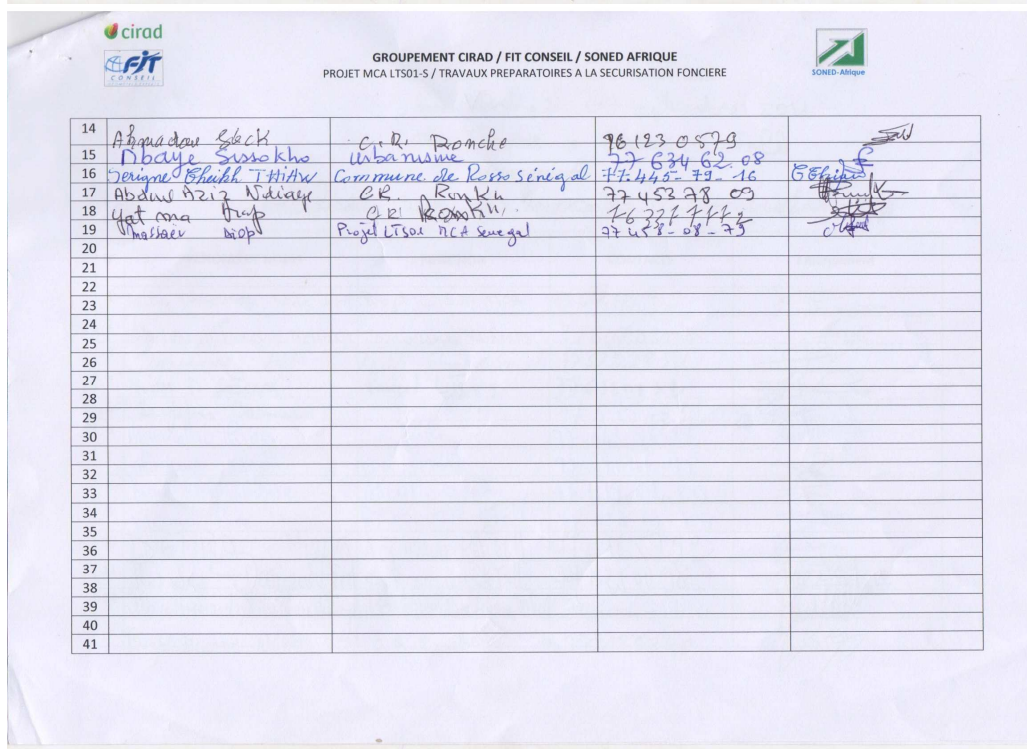 cirad
FIT
CONSEIL
SONED-Afrique
GROUPEMENT CIRAD / FIT CONSEIL / SONED AFRIQUE
PROJET MCA LTS01-S / TRAVAUX PREPARATOIRES A LA SECURISATION FONCIERE
14 Ahmadou C.R. Ronche 76 123 0579
15 Dbaye Sissokho urbanisme 77 634 62.08
16 Serigne Cheikh THIAW Commune de Rosso sénégal 77-445-79-16
17 Abdoul Aziz Ndiaye C.R. Ronkh 77 453 78 09
18 Yat ma C.R. Ronkh
19 Massaer Diop Projet LTS01 MCA Senegal 77 458-08-79
20
21
22
23
24
25
26
27
28
29
30
31
32
33
34
35
36
37
38
39
40
41